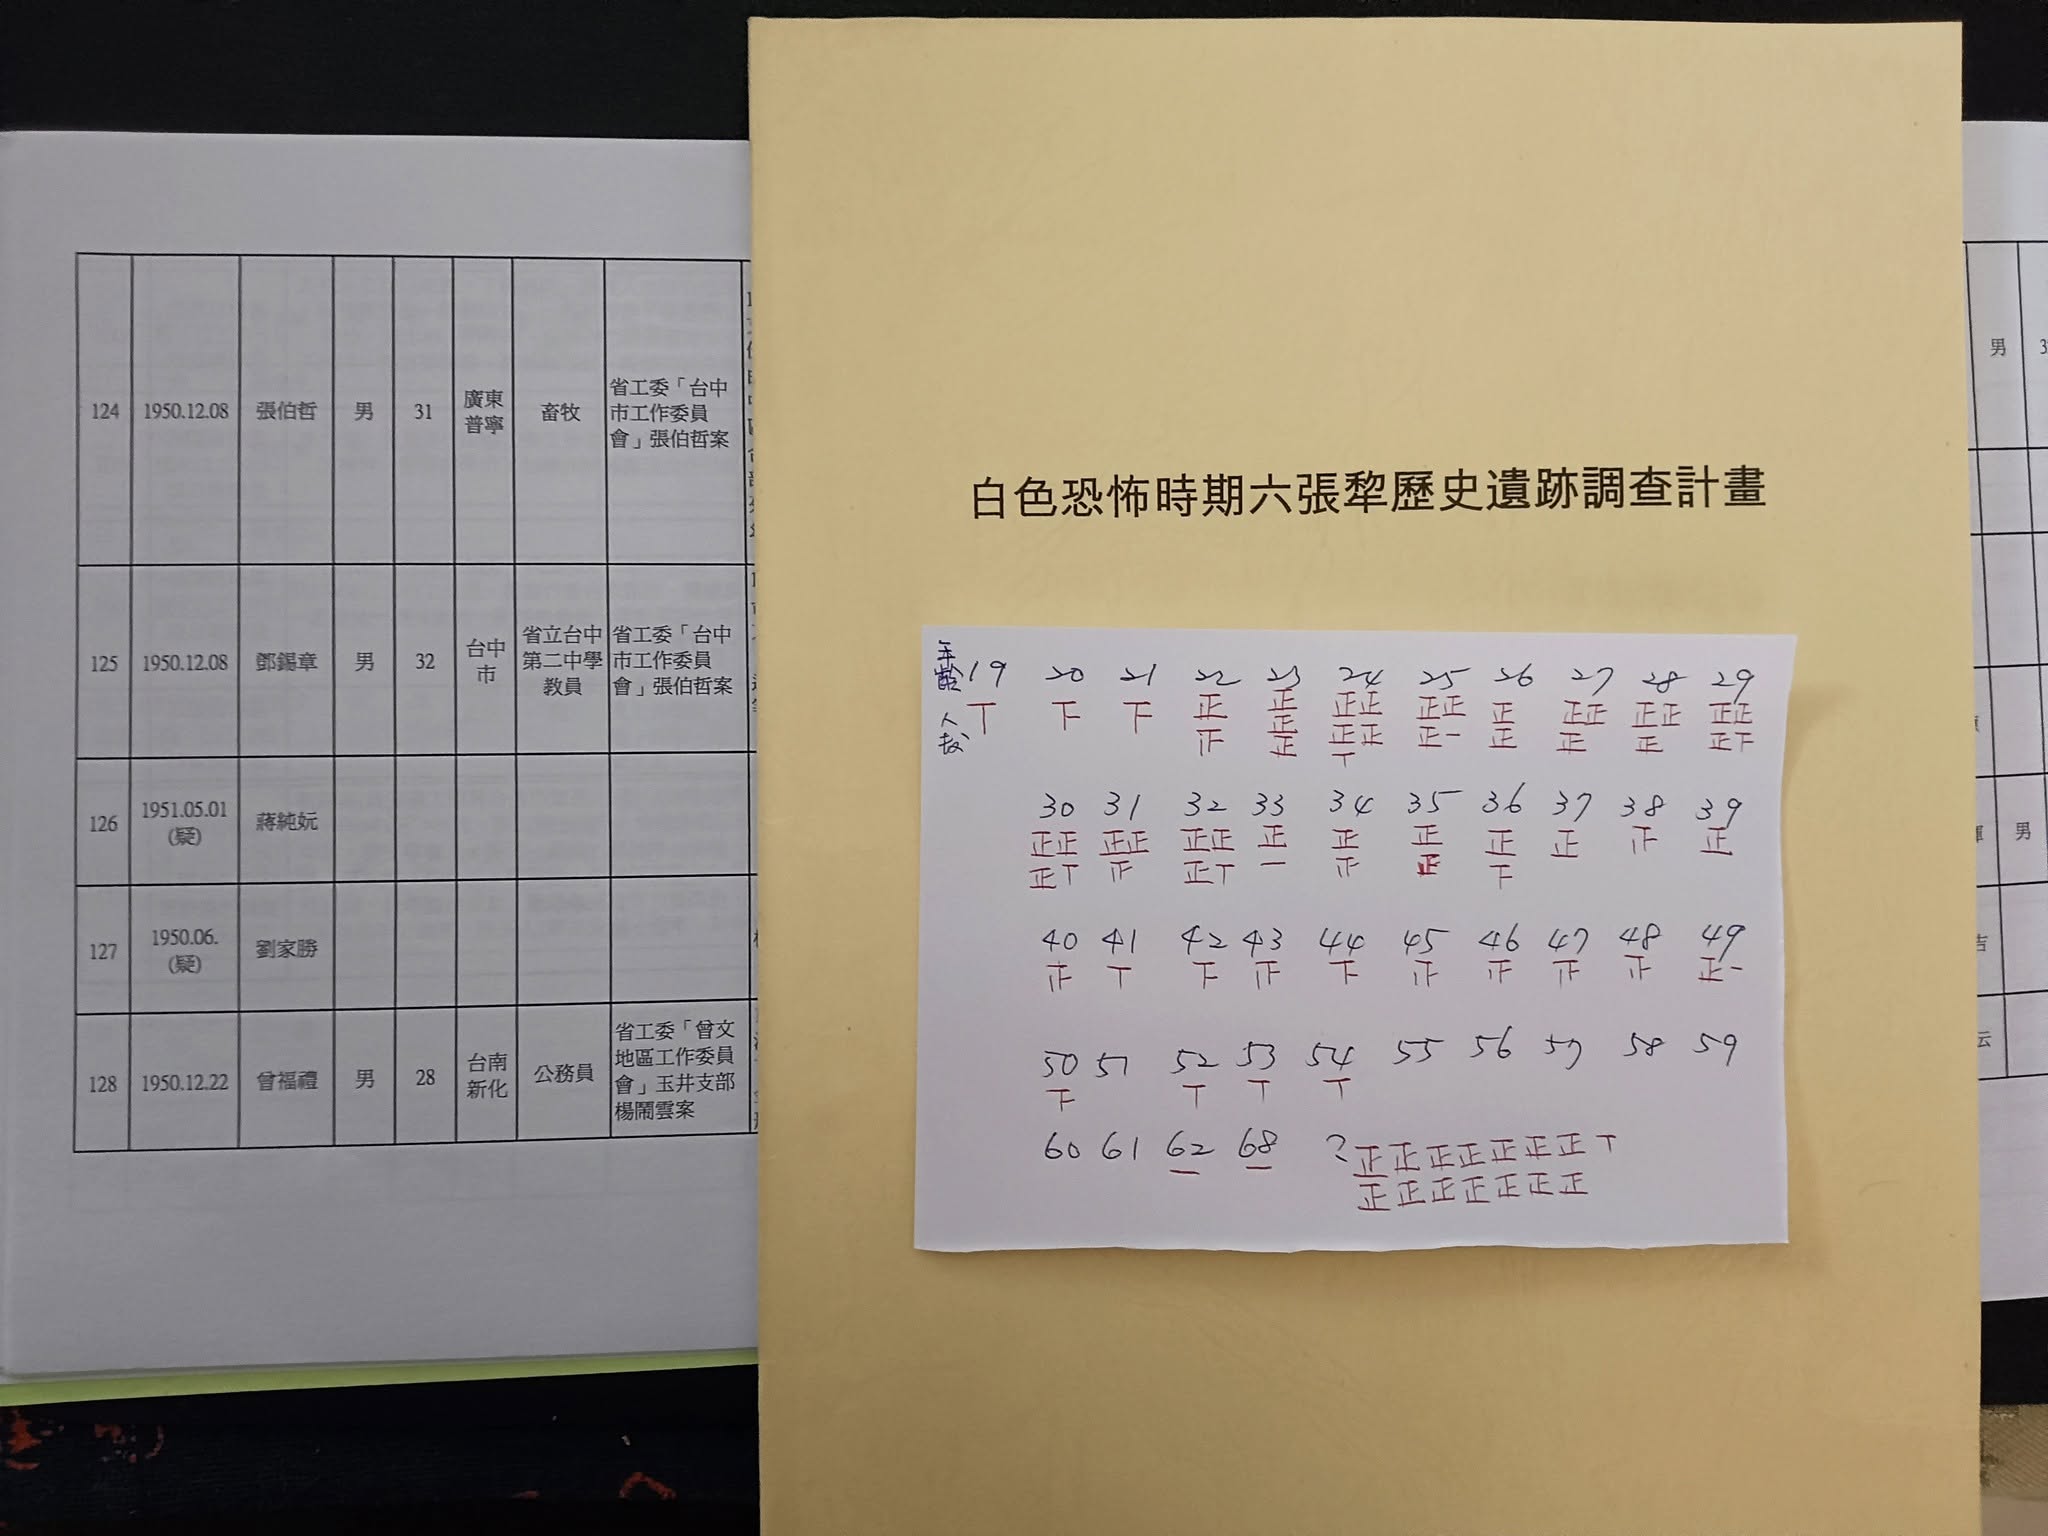 124 1950.12.08 張伯哲 男 31 廣東普寧 畜牧 省工委「台中市工作委員會」張伯哲案
125 1950.12.08 鄧錫章 男 32 台中市 省立台中第二中學教員 省工委「台中市工作委員會」張伯哲案
126 1951.05.01(疑) 蔣純妧
127 1950.06.(疑) 劉家勝
128 1950.12.22 曾福禮 男 28 台南新化 公務員 省工委「曾文地區工作委員會」玉井支部楊鬧雲案
白色恐怖時期六張犂歷史遺跡調查計畫
年齡 19 20 21 22 23 24 25 26 27 28 29
人數 丅 下 下 正 正 正正 正正 正 正正 正正 正正
正 正正 正一 正 正 正 正下
正 丅
30 31 32 33 34 35 36 37 38 39
正正 正正 正正 正 正 正 正 正 正
正丅 正丅 一 正 下
40 41 42 43 44 45 46 47 48 49
丅 下 下 正一
50 51 52 53 54 55 56 57 58 59
下 丅 丅 丅
60 61 62 68 ? 正正正正正正正丅
一 一 正正正正正正正
男
男